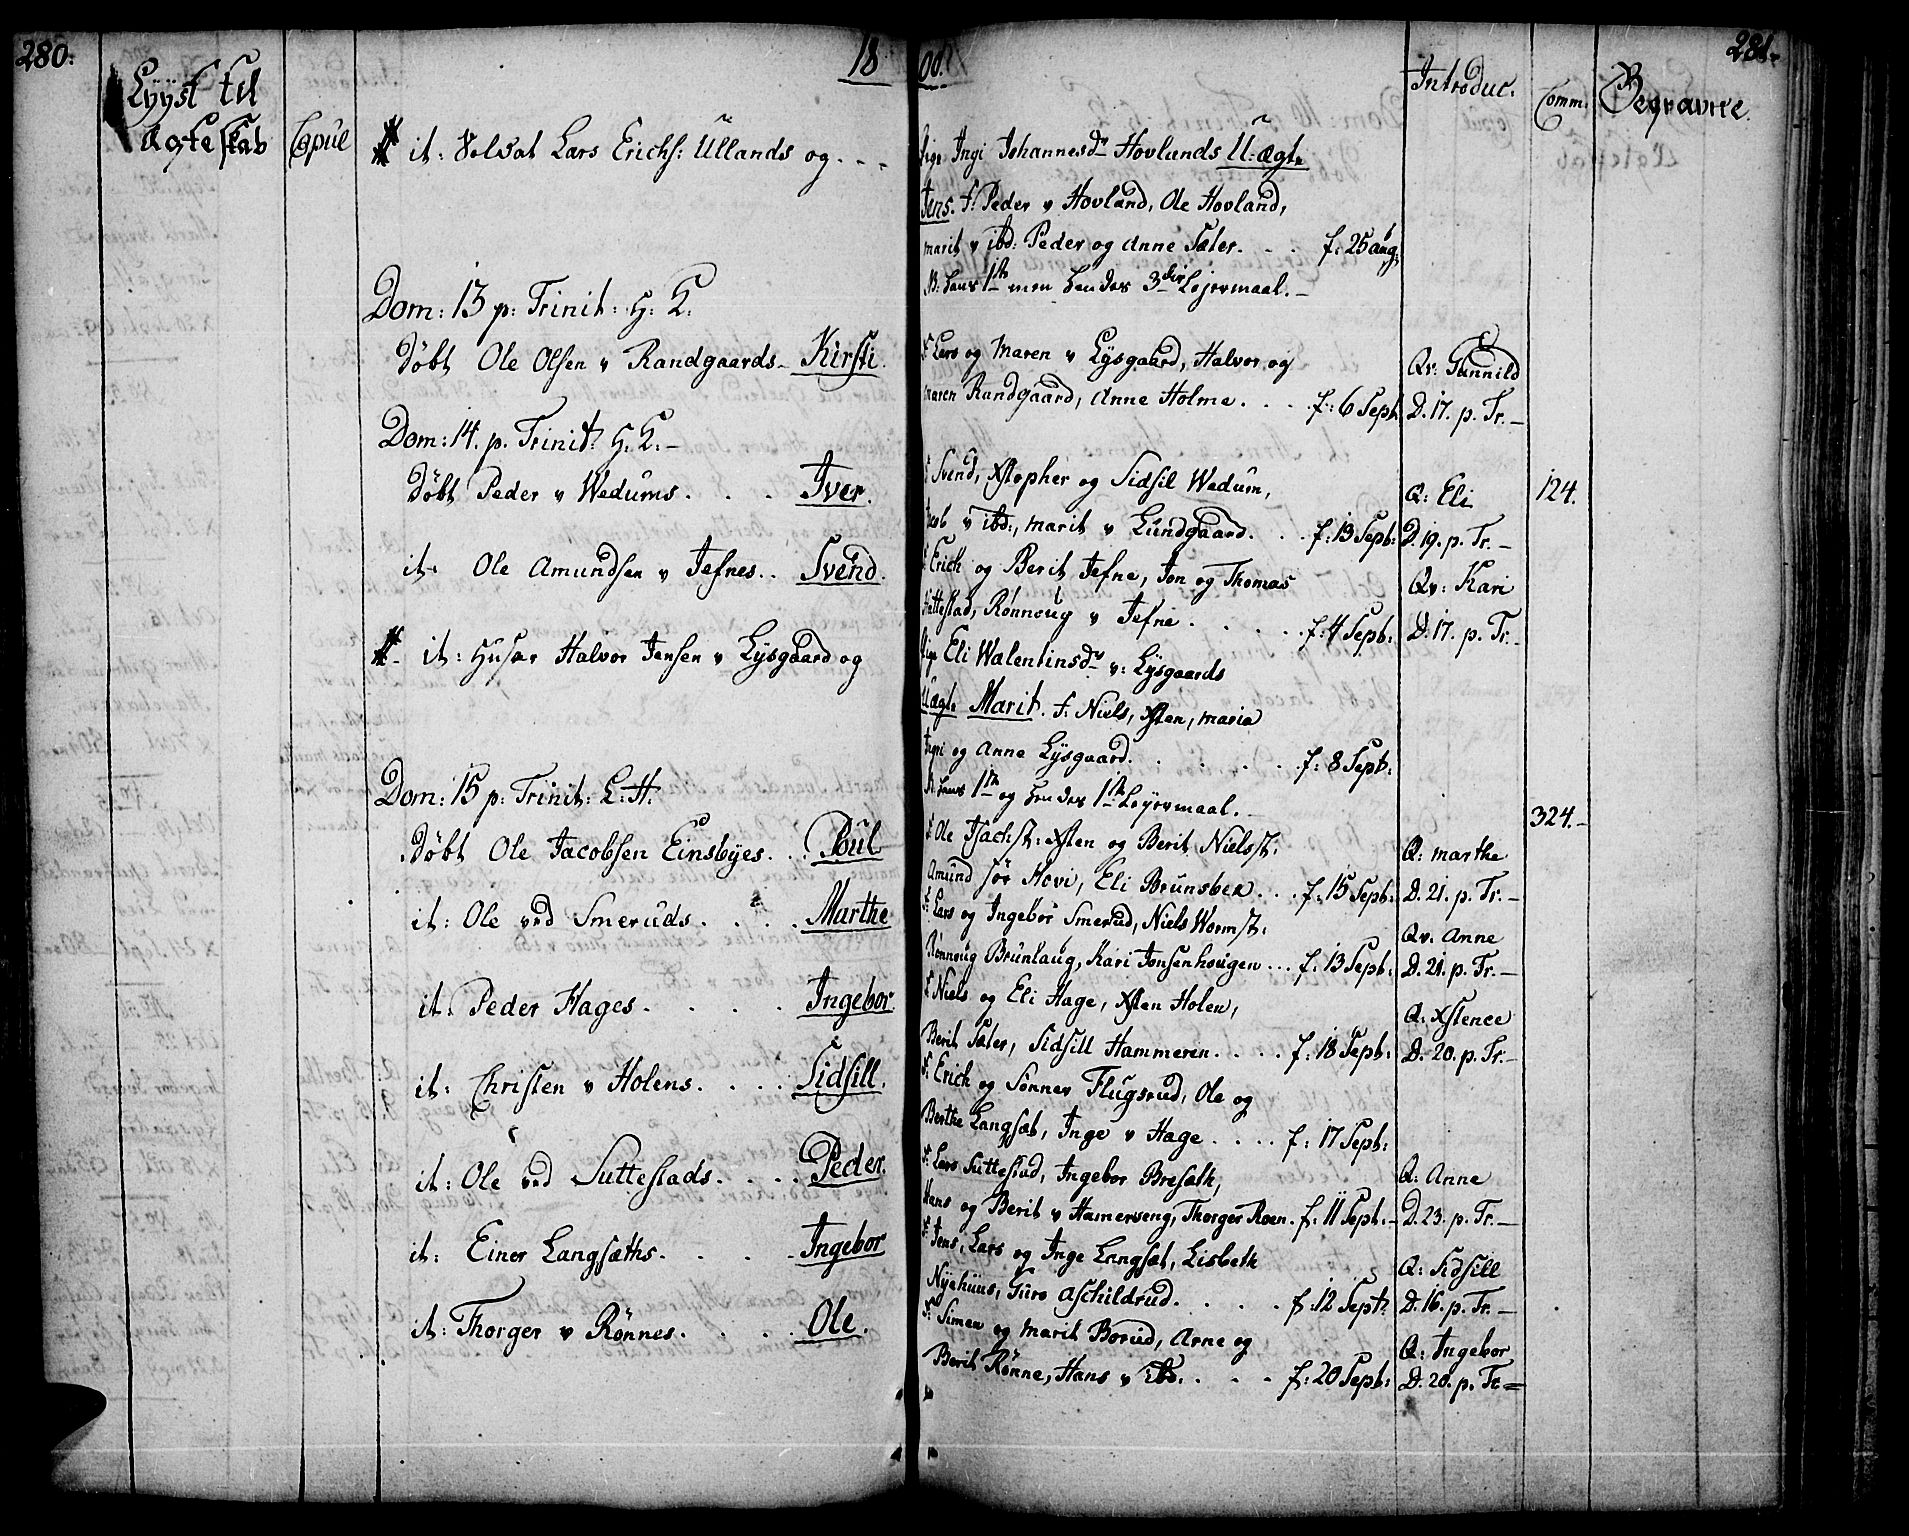 280.
18
00.
281.
Lÿÿst til
Ægteskab
Copul
Introduc.
Comm.
Begravne.
it: Soldat Lars Erichs: Ullands og . . .
Pige Ingi Johannesdr Hovlands U:ægte
Jens. F: Peder v Hovland, Ole Hovland,
marit v ibd: Peder og Anne Sæter. . . f: 25 aug:
NB: hans 1ste men hendes 3die Lejermaal. –
Dom: 13 p: Trinit: H: K.
Døbt Ole Olsen v Randgaards - Kirsti.
F Lars og Maren v Lÿsgaard, Halvor og
maren Randgaard, Anne Holme. . . . f: 6 Sept:
Qv: Gunnild
D. 17. p. Tr. –
Dom: 14. p. Trinit: H: K: –
Døbt Peder v Wedums. . . . Iver.
F Svend, Xstopher og Sidsil Wedum,
Jacob v ibd:, marit v Lundgaard. . . f: 13 Sept:
Q: Eli
D. 19. p. Tr. –
124.
it. Ole Amundsen v Jefnes. . Svend.
F Erich og Berit Jefne, Jon og Thomas
Suttestad, Rønnoug v Jefne . . . . . f: 4 Sept:
Qv: Kari
D. 17. p. Tr. –
it: Husar Halvor Jensen v Lÿsgaard og
Pige Eli Walentinsdr v: Lÿsgaards
Uægte Marit. F: Niels, Xsten, maria
Ingri og Anne Lÿsgaard. . . . . . f: 8 Sept:
N. hans 1ste og hendes 1ste Lejermaal. –
Dom: 15 p: Trinit: L: H.
324. –
Døbt Ole Jacobsen Einsbÿes. . . Poul
F Ole Isachst: Xsten og Berit Nielsst:
Amund Sør Hovi, Eli Brunsber . . . f: 15 Sept:
Q: marthe
D. 21. p. Tr. –
it: Ole ved Smeruds. . . . . Marthe
F: Lars og Ingebor Smerud, Niels Wormst:
Rønnoug Brunlaug, Kari Jonsenhougen . . . f: 13 Sept:
Qv. Anne
D. 21. p. Tr. –
it. Peder Hages. . . . . Ingebor
F Niels og Eli Hage, Xsten Holen,
Berit Sæter, Sidsill Hammeren . . . . f: 18 Sept:
Q: Xstence
D. 20. p. Tr. –
it: Christen v Holens. . . . . Sidsill.
F. Erich og Sønnev Flugsrud, Ole og
Berthe Langsæt, Inge v Hage . . . . f: 17 Sept:
it: Ole ved Suttestads. . . . . Peder.
F. Lars Suttestad, Ingebor Bresath,
Hans og Berit v Hamerseng, Thorger Roen. f: 11 Sept: –
Q: Anne
D. 23. p. Tr. –
it: Einer Langsæths. . . . . Ingebor
F: Jens, Lars og Inge Langsæt, Lisbeth
Nÿehuus, Guro Aschildrud. . . . . f: 12 Sept:
Q: Sidsill
D. 16. p. Tr. –
it: Thorger v Rønnes. . . . . Ole.
F: Simen og marit Borud, Arne og
Berit Rønne, Hans v Ibd. . . . f: 20 Sept:
Q: Ingebor
D. 20. p. Tr =